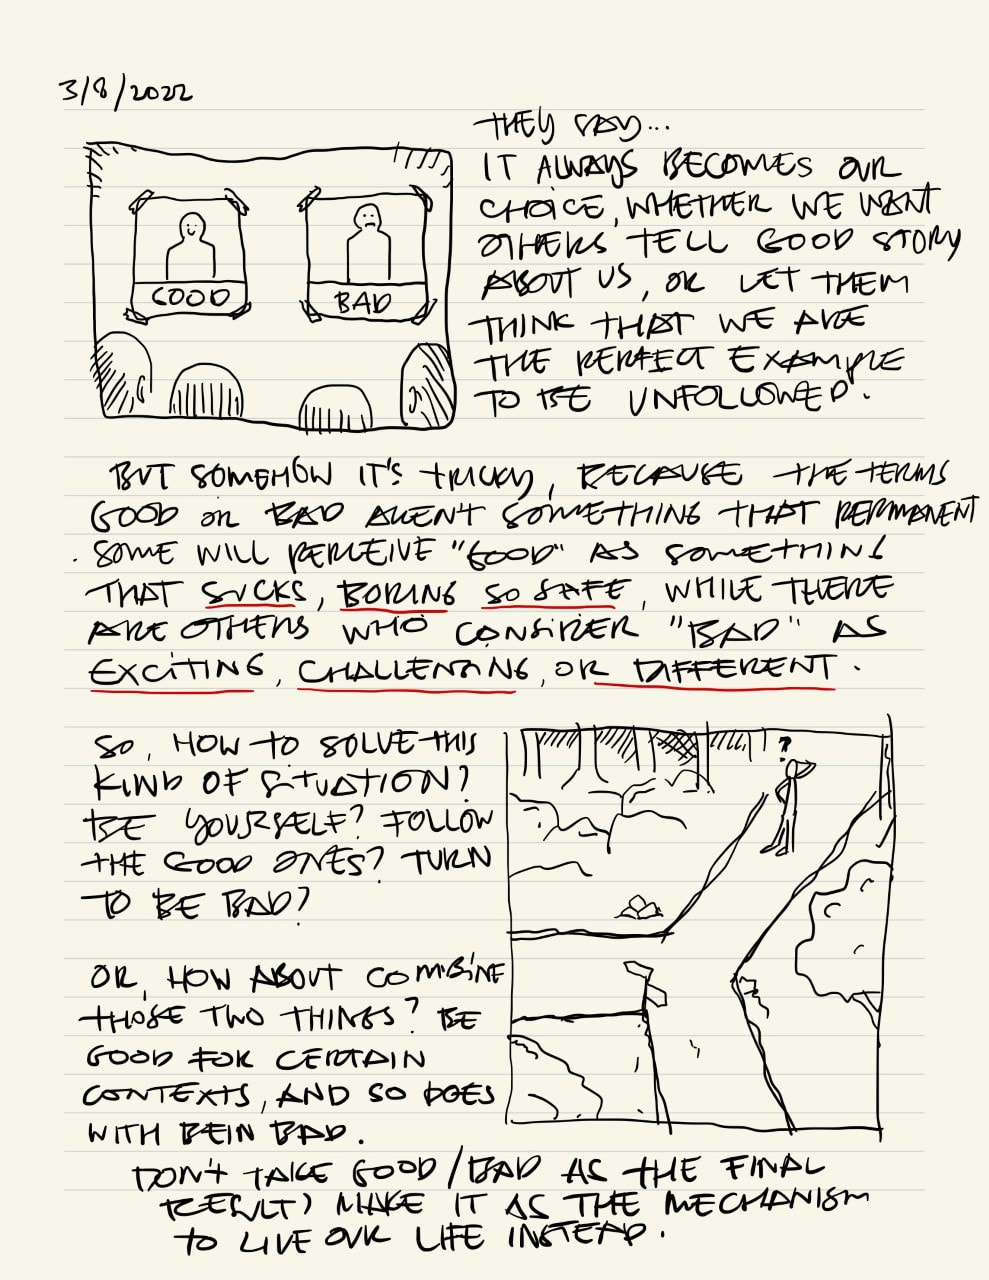 3/8/2022
THEY SAY...
IT ALWAYS BECOMES OUR
CHOICE, WHETHER WE WANT
OTHERS TELL GOOD STORY
ABOUT US, OR LET THEM
THINK THAT WE ARE
THE PERFECT EXAMPLE
TO BE UNFOLLOWED.
GOOD
BAD
BUT SOMEHOW IT'S TRICKY, BECAUSE THE TERMS
GOOD OR BAD AREN'T SOMETHING THAT PERMANENT
. SOME WILL PERCEIVE "GOOD" AS SOMETHING
THAT SUCKS, BORING SO SAFE, WHILE THERE
ARE OTHERS WHO CONSIDER "BAD" AS
EXCITING, CHALLENGING, OR DIFFERENT.
SO, HOW TO SOLVE THIS
KIND OF SITUATION?
BE YOURSELF? FOLLOW
THE GOOD ONES? TURN
TO BE BAD?
?
OR, HOW ABOUT COMBINE
THOSE TWO THINGS? BE
GOOD FOR CERTAIN
CONTEXTS, AND SO DOES
WITH BEIN BAD.
DON'T TAKE GOOD/BAD AS THE FINAL
RESULT) MAKE IT AS THE MECHANISM
TO LIVE OUR LIFE INSTEAD.